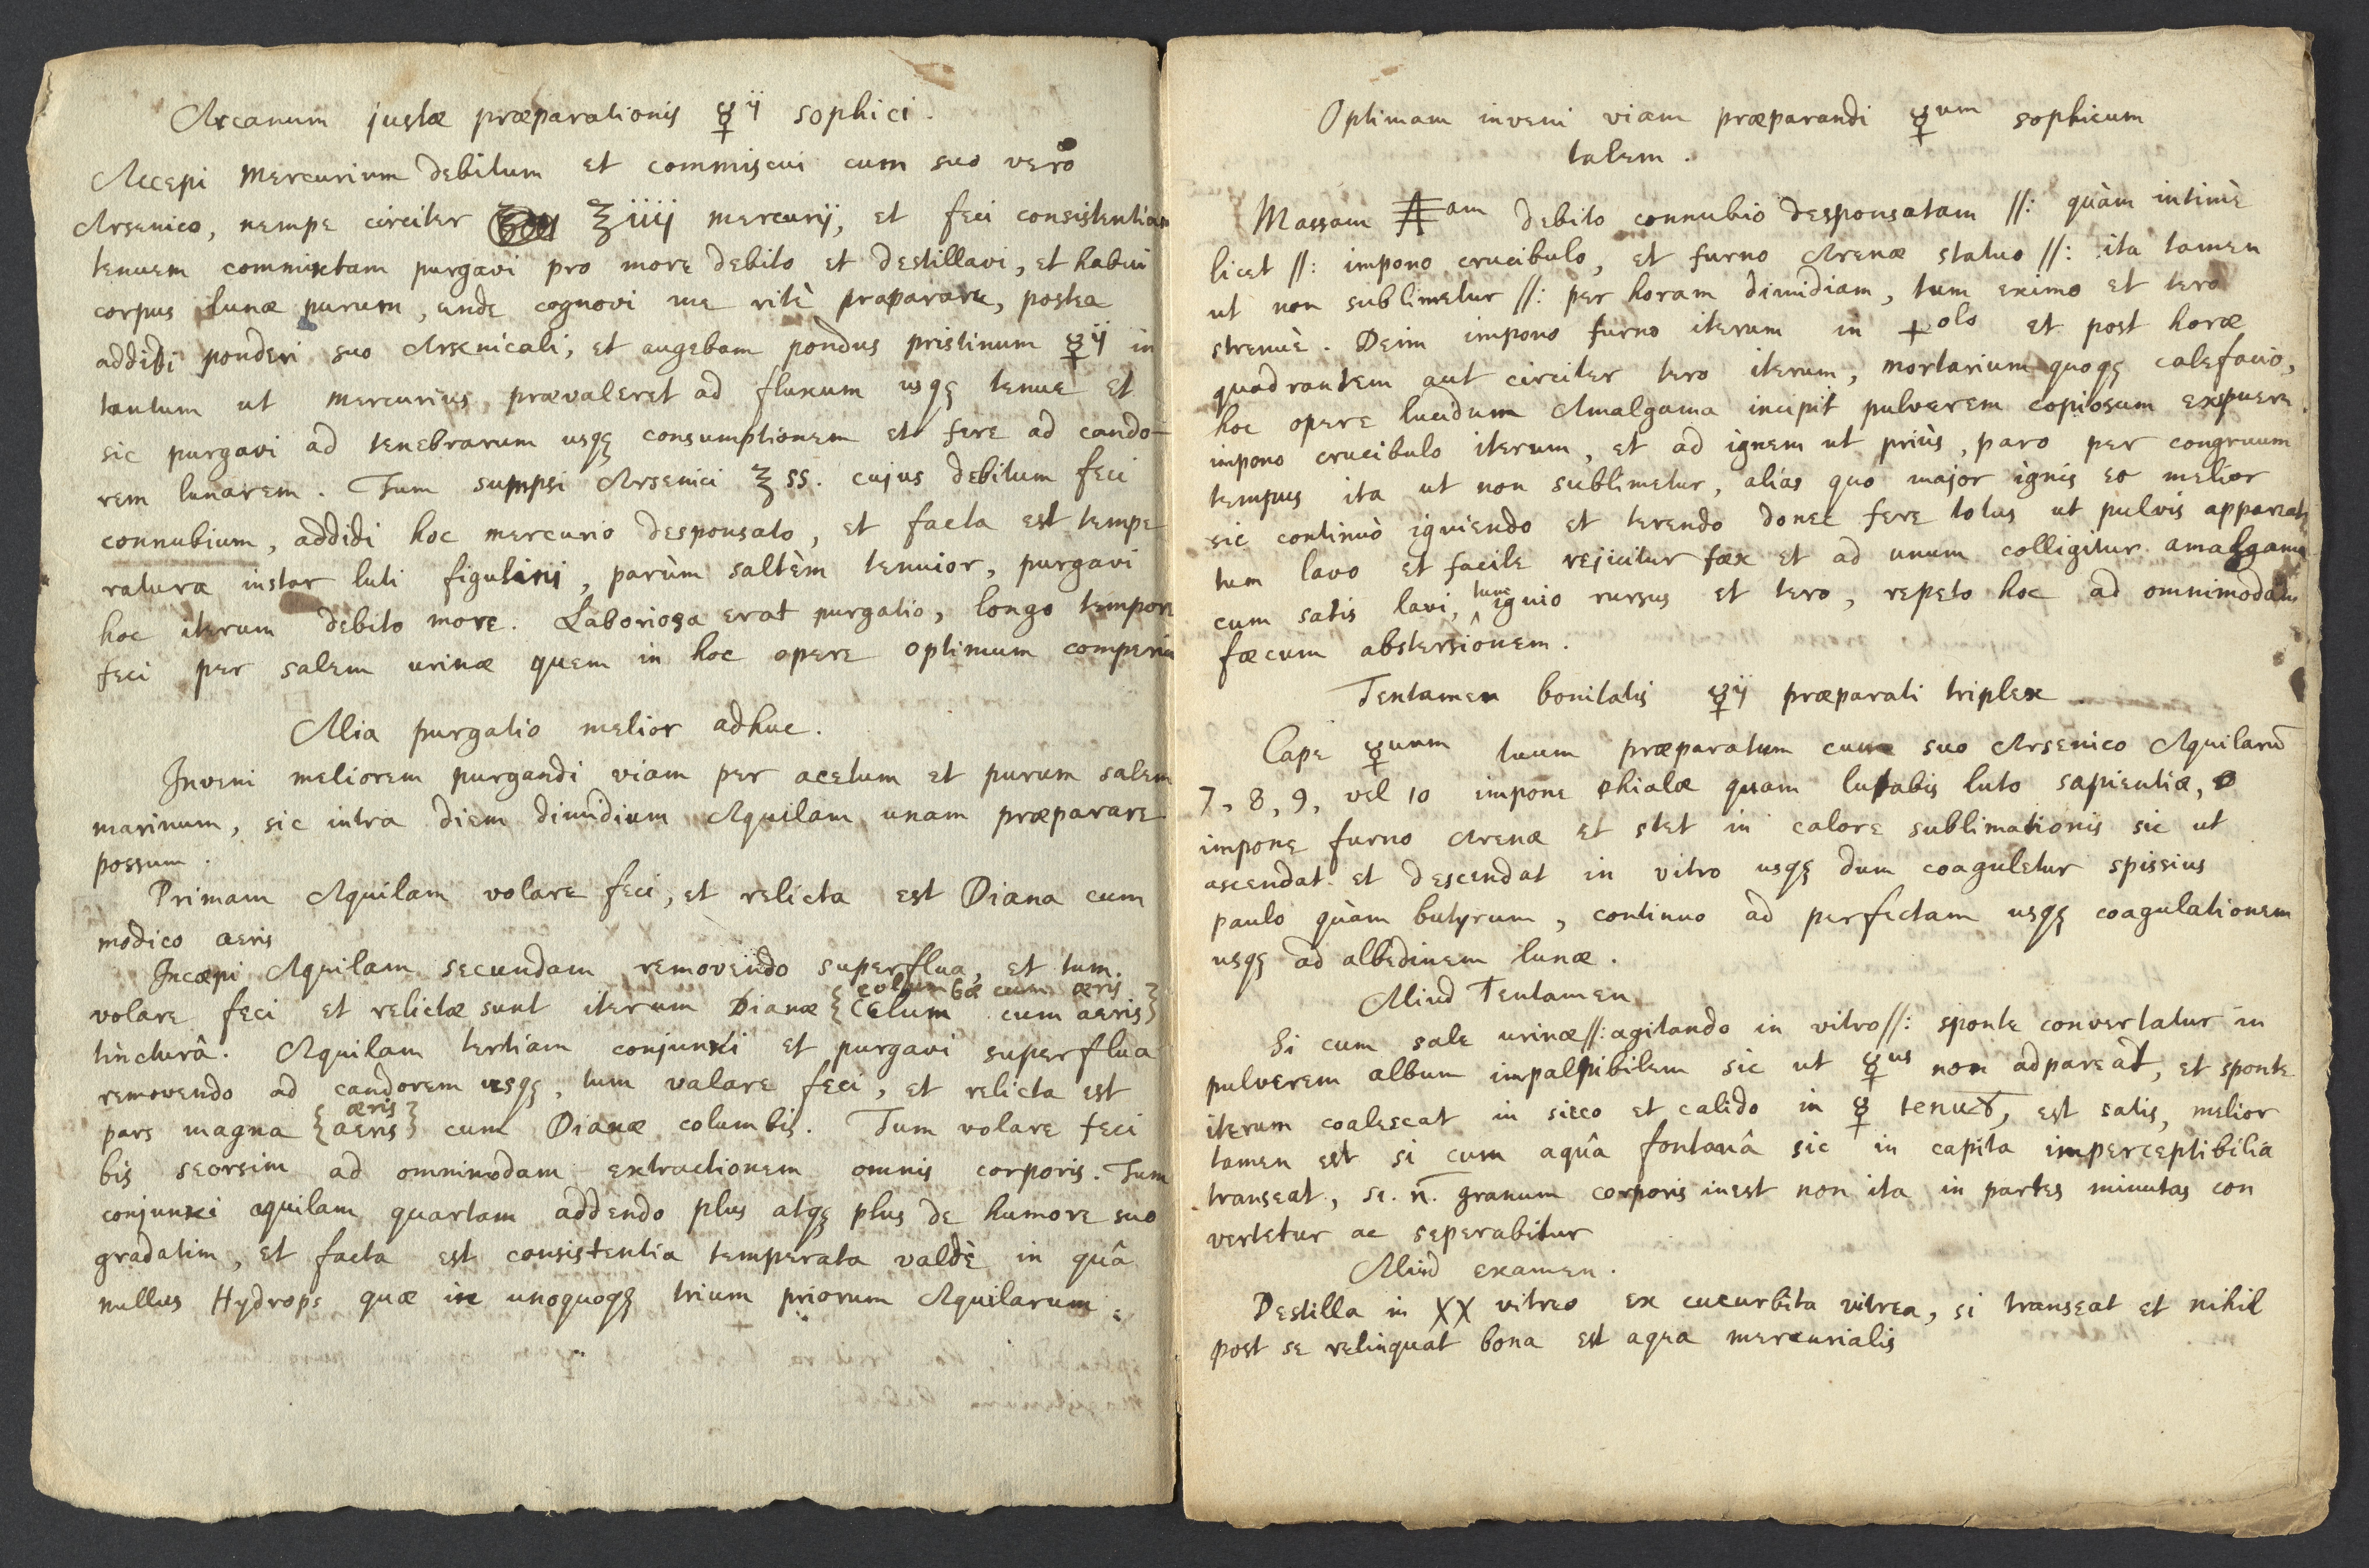 Arcanum justæ præparationis ☿ij sophici.
Accepi mercurium debitum et commiscui cum suo vero
Arsenico, nempe circiter ℥iiij mercurij, et feci consistentiam
tenuem commixtam purgavi pro more debito et destillavi, et habui
corpus lunæ purum, unde cognovi me ritè præparare, postea
addidi ponderi suo Arsenicali, et augebam pondus pristinum ☿ij in
tantum ut mercurius prævaleret ad fluxum usqꝫ tenue et
sic purgavi ad tenebrarum usqꝫ consumptionem et fere ad cando-
rem lunarem. Tum sumpsi Arsenici ℥ss. cujus debitum feci
connubium, addidi hoc mercurio desponsato, et facta est tempe
ratura instar luti figulini, parùm saltèm tenuior, purgavi
hoc iterum debito more. Laboriosa erat purgatio, longo tempore
feci per salem urinæ quem in hoc opere optimum comperiu
Alia purgatio melior adhuc.
Inveni meliorem purgandi viam per acetum et purum salem
marinum, sic intra diem dimidium Aquilam unam præparare
possum.
Primam Aquilam volare feci, et relicta est Diana cum
modico aeris
Incœpi Aquilam secundam removendo superflua, et tum.
volare feci et relictæ sunt iterum Dianæ {columbæ cum æris
Celum cum aeris}
tincturâ. Aquilam tertiam conjunxi et purgavi superflua
removendo ad candorem usqꝫ, tum valare feci, et relicta est
pars magna {æris
aeris} cum Dianæ columbis. Tum volare feci
bis seorsim ad omnimodam extractionem omnis corporis. Tum
conjunxi aquilam quartam addendo plus atqꝫ plus de humore suo
gradatim, et facta est consistentia temperata valdè in quâ
nullus Hydrops quæ in unoquoqꝫ trium priorum Aquilarum.
Optimam inveni viam præparandi ☿um sophicum
talem.
Massam am debito connubio desponsatam //: quàm intimè
licet //: impono crucibulo, et furno Arenæ statuo //: ita tamen
ut non sublimetur //: per horam dimidiam, tum eximo et tero
strenuè. Dein impono furno iterum in +olo et post horæ
quadrantem aut circiter tero iterum, mortarium quoqꝫ calefacio,
hoc opere lucidum Amalgama incipit pulverem copiosum expuere.
impono crucibulo iterum, et ad ignem ut priùs, paro per congruum
tempus ita ut non sublimetur, aliàs quo major ignis eo melior
sic continuò igniendo et terendo donec fere totus ut pulvis appareat
tum lavo et facile rejicitur fæx et ad unum colligitur amalgama
cum satis lavi, tunc ignio rursus et tero, repeto hoc ad omnimodam
fæcum abstersiônem.
Tentamen bonitatis ☿ij præparati triplex.
Cape ☿uum tuum præparatum cum suo Arsenico Aquilarū
7, 8, 9, vel 10 impone phialæ quam lutabis luto sapientiæ,
impone furno Arenæ et stet in calore sublimationis sic ut
ascendat et descendat in vitro usqꝫ dum coaguletur spissius
paulo quàm butyrum, continuo ad perfectam usqꝫ coagulationem
usqꝫ ad albedinem lunæ.
Aliud Tentamen
Si cum sale urinæ //: agitando in vitro //: sponte convertatur in
pulverem album impalpibilem sic ut ☿us non adpareat, et sponte
iterum coalescat in sicco et calido in ☿ est satis, melior
tamen est si cum aquâ fontanâ sic in capita imperceptibilia
transeat, si. n̄. granum corporis inest non ita in partes minutas con
vertetur ac seperabitur
Aliud examen.
Destilla in XX vitreo ex cucurbita vitrea, si transeat et nihil
post se relinquat bona est aqua mercurialis